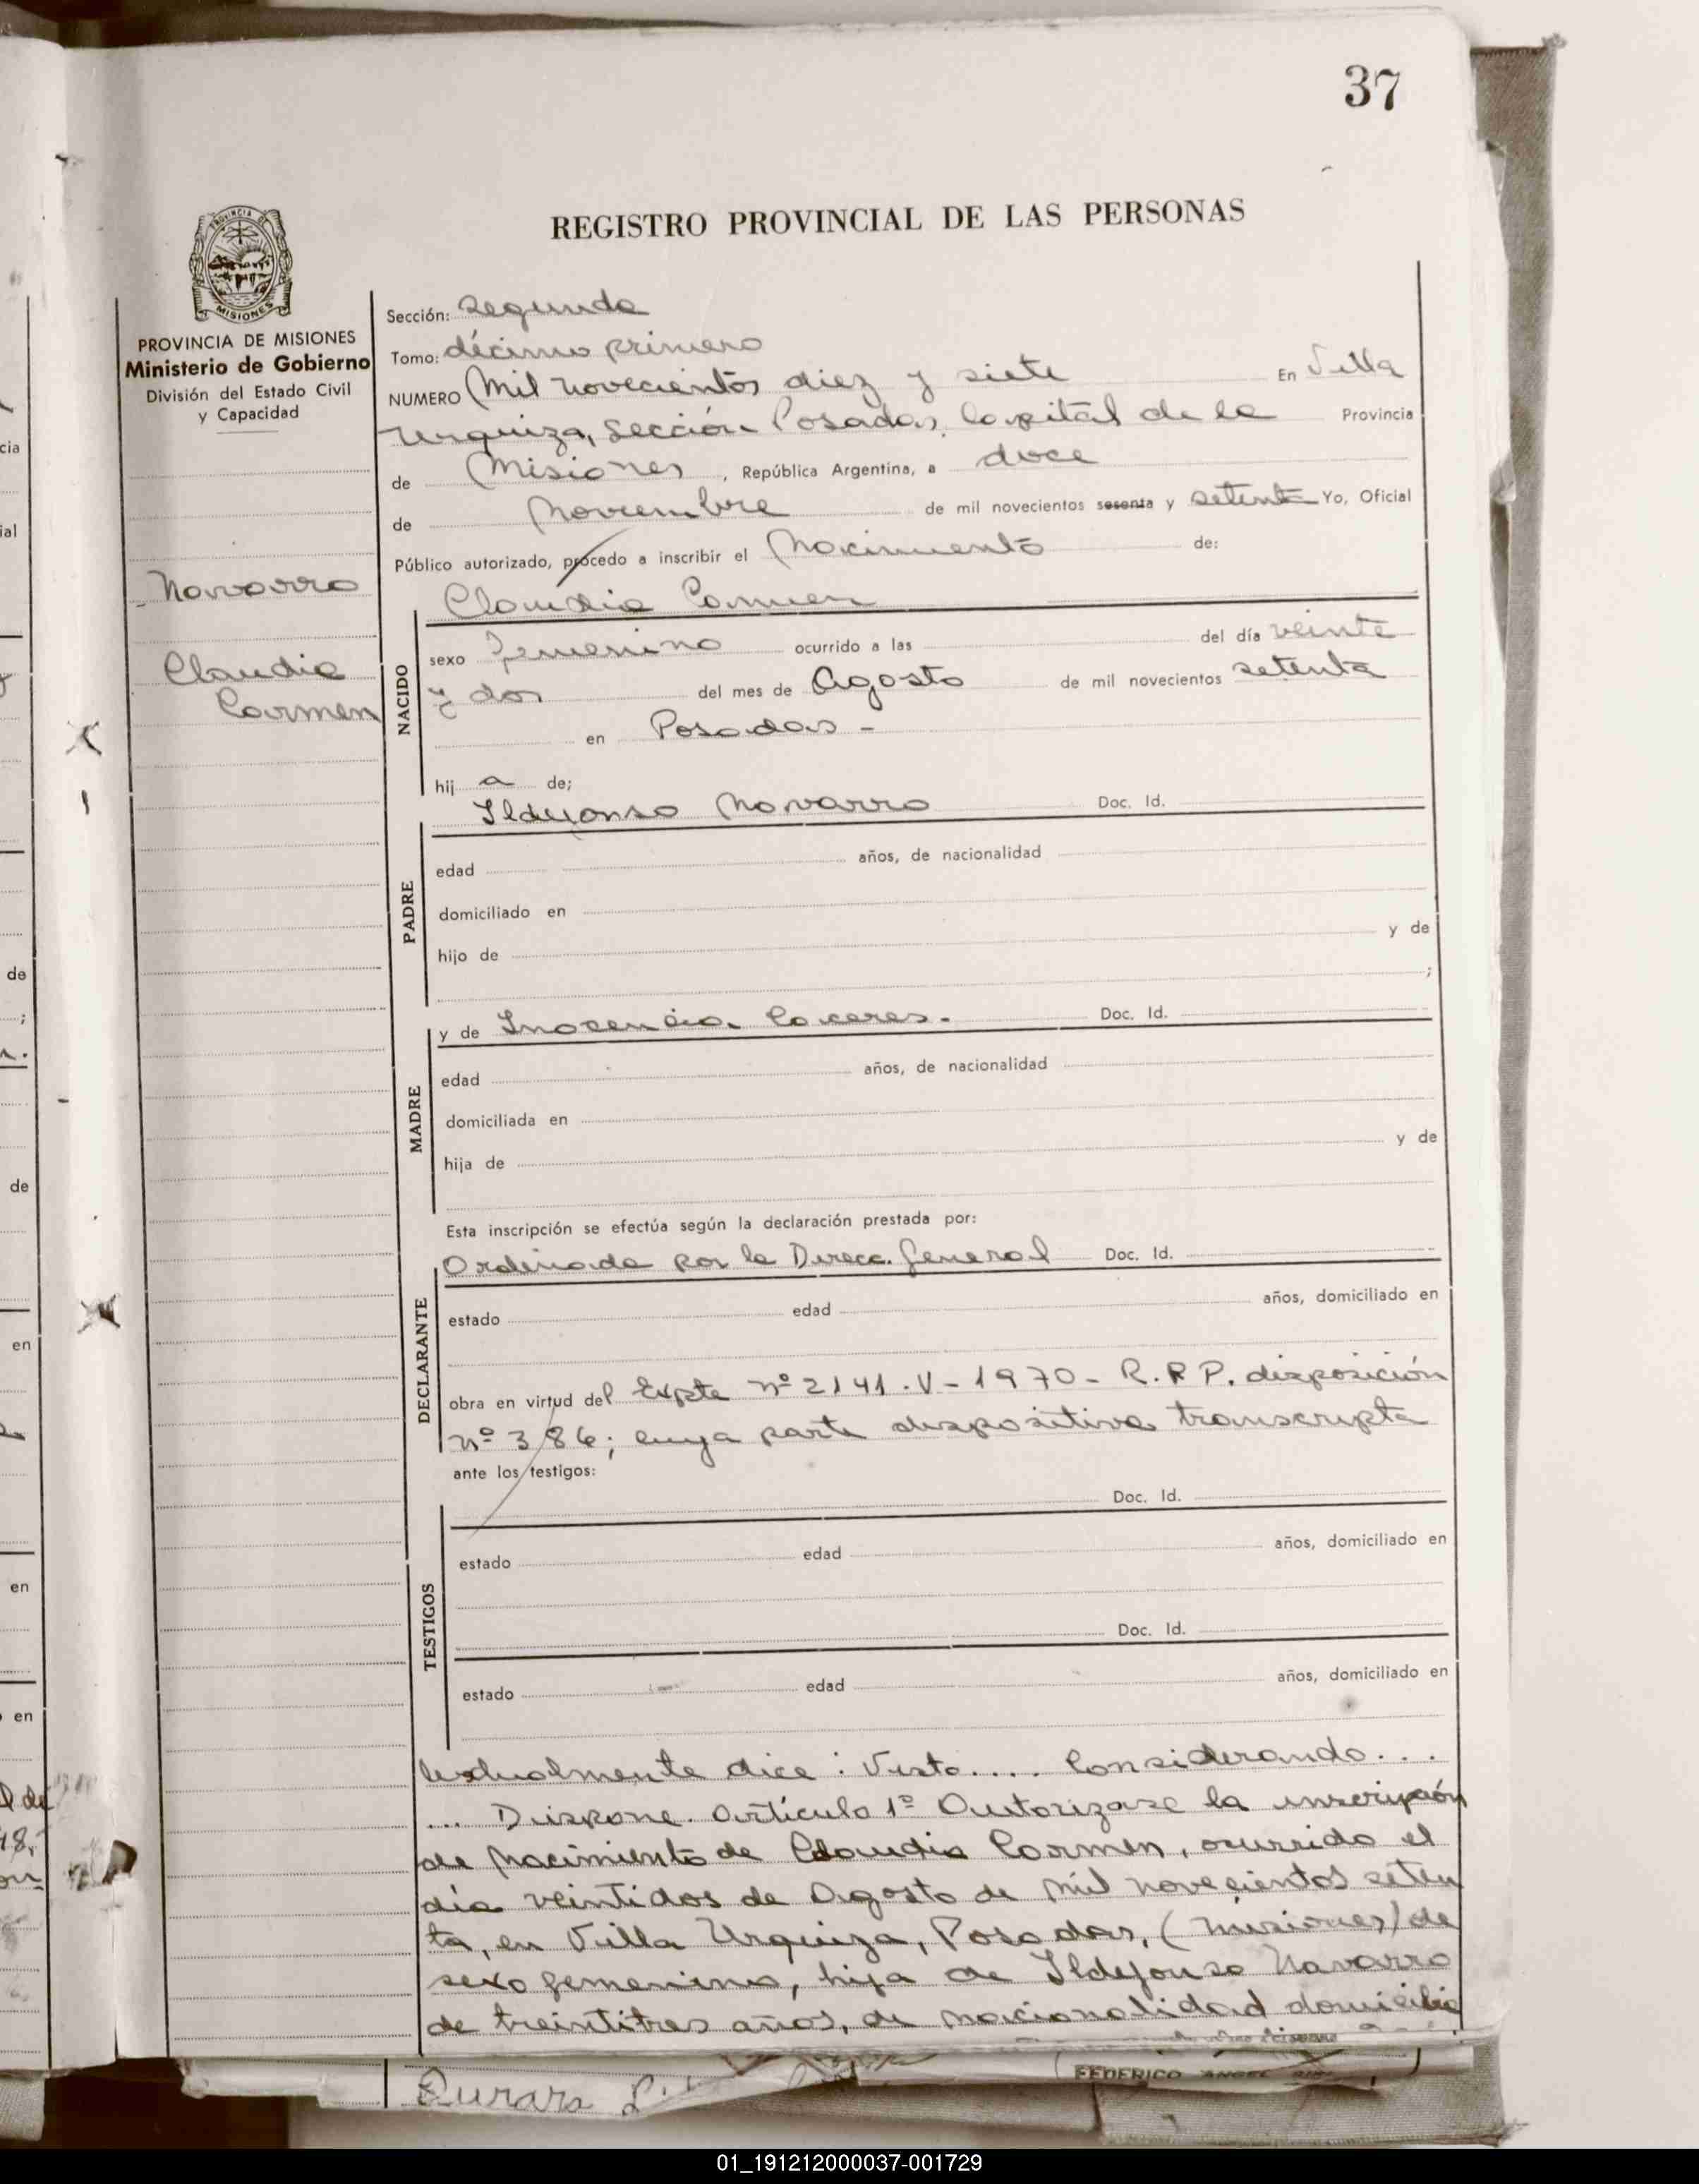 37
REGISTRO PROVINCIAL DE LAS PERSONAS
PROVINCIA DE
MISIONES
PROVINCIA DE MISIONES
Ministerio de Gobierno
División del Estado Civil
y Capacidad
Navarro
Claudia
Carmen
Sección: Segunda
Tomo: décimo primero
NUMERO Mil novecientos diez y siete En Villa
Urquiza, Sección Posadas, Capital de la Provincia
de Misiones, República Argentina, a doce
de Noviembre de mil novecientos sesenta y setenta Yo, Oficial
Público autorizado, procedo a inscribir el Nacimiento de:
Claudia Carmen
NACIDO
sexo femenino ocurrido a las del día veinte
y dos del mes de Agosto de mil novecientos setenta
en Posadas -
hij a de;
Ildefonso Navarro Doc. Id.
PADRE
edad años, de nacionalidad
domiciliado en
hijo de y de
;
y de Inocencia Caceres. Doc. Id.
MADRE
edad años, de nacionalidad
domiciliada en
hija de y de
Esta inscripción se efectúa según la declaración prestada por:
Ordenada por la Direcc. General Doc. Id.
DECLARANTE
estado edad años, domiciliado en
obra en virtud del Expte nº 2141-V-1970- R.R P. disposición
nº 386; cuya parte dispositiva transcripta
ante los testigos:
Doc. Id.
TESTIGOS
estado edad años, domiciliado en
Doc. Id.
estado edad años, domiciliado en
textualmente dice: Visto.... Considerando...
... Dispone. Artículo 1º Autorizase la inscripción
de nacimiento de Claudia Carmen, ocurrido el
día veintidos de Agosto de mil novecientos seten
ta, en Villa Urquiza, Posadas, (Misiones) de
sexo femenino, hija de Ildefonso Navarro
de treintitres años, de nacionalidad domicilia
FEDERICO ANGEL
cia
ial
de
;
de
en
en
en
01_191212000037-001729